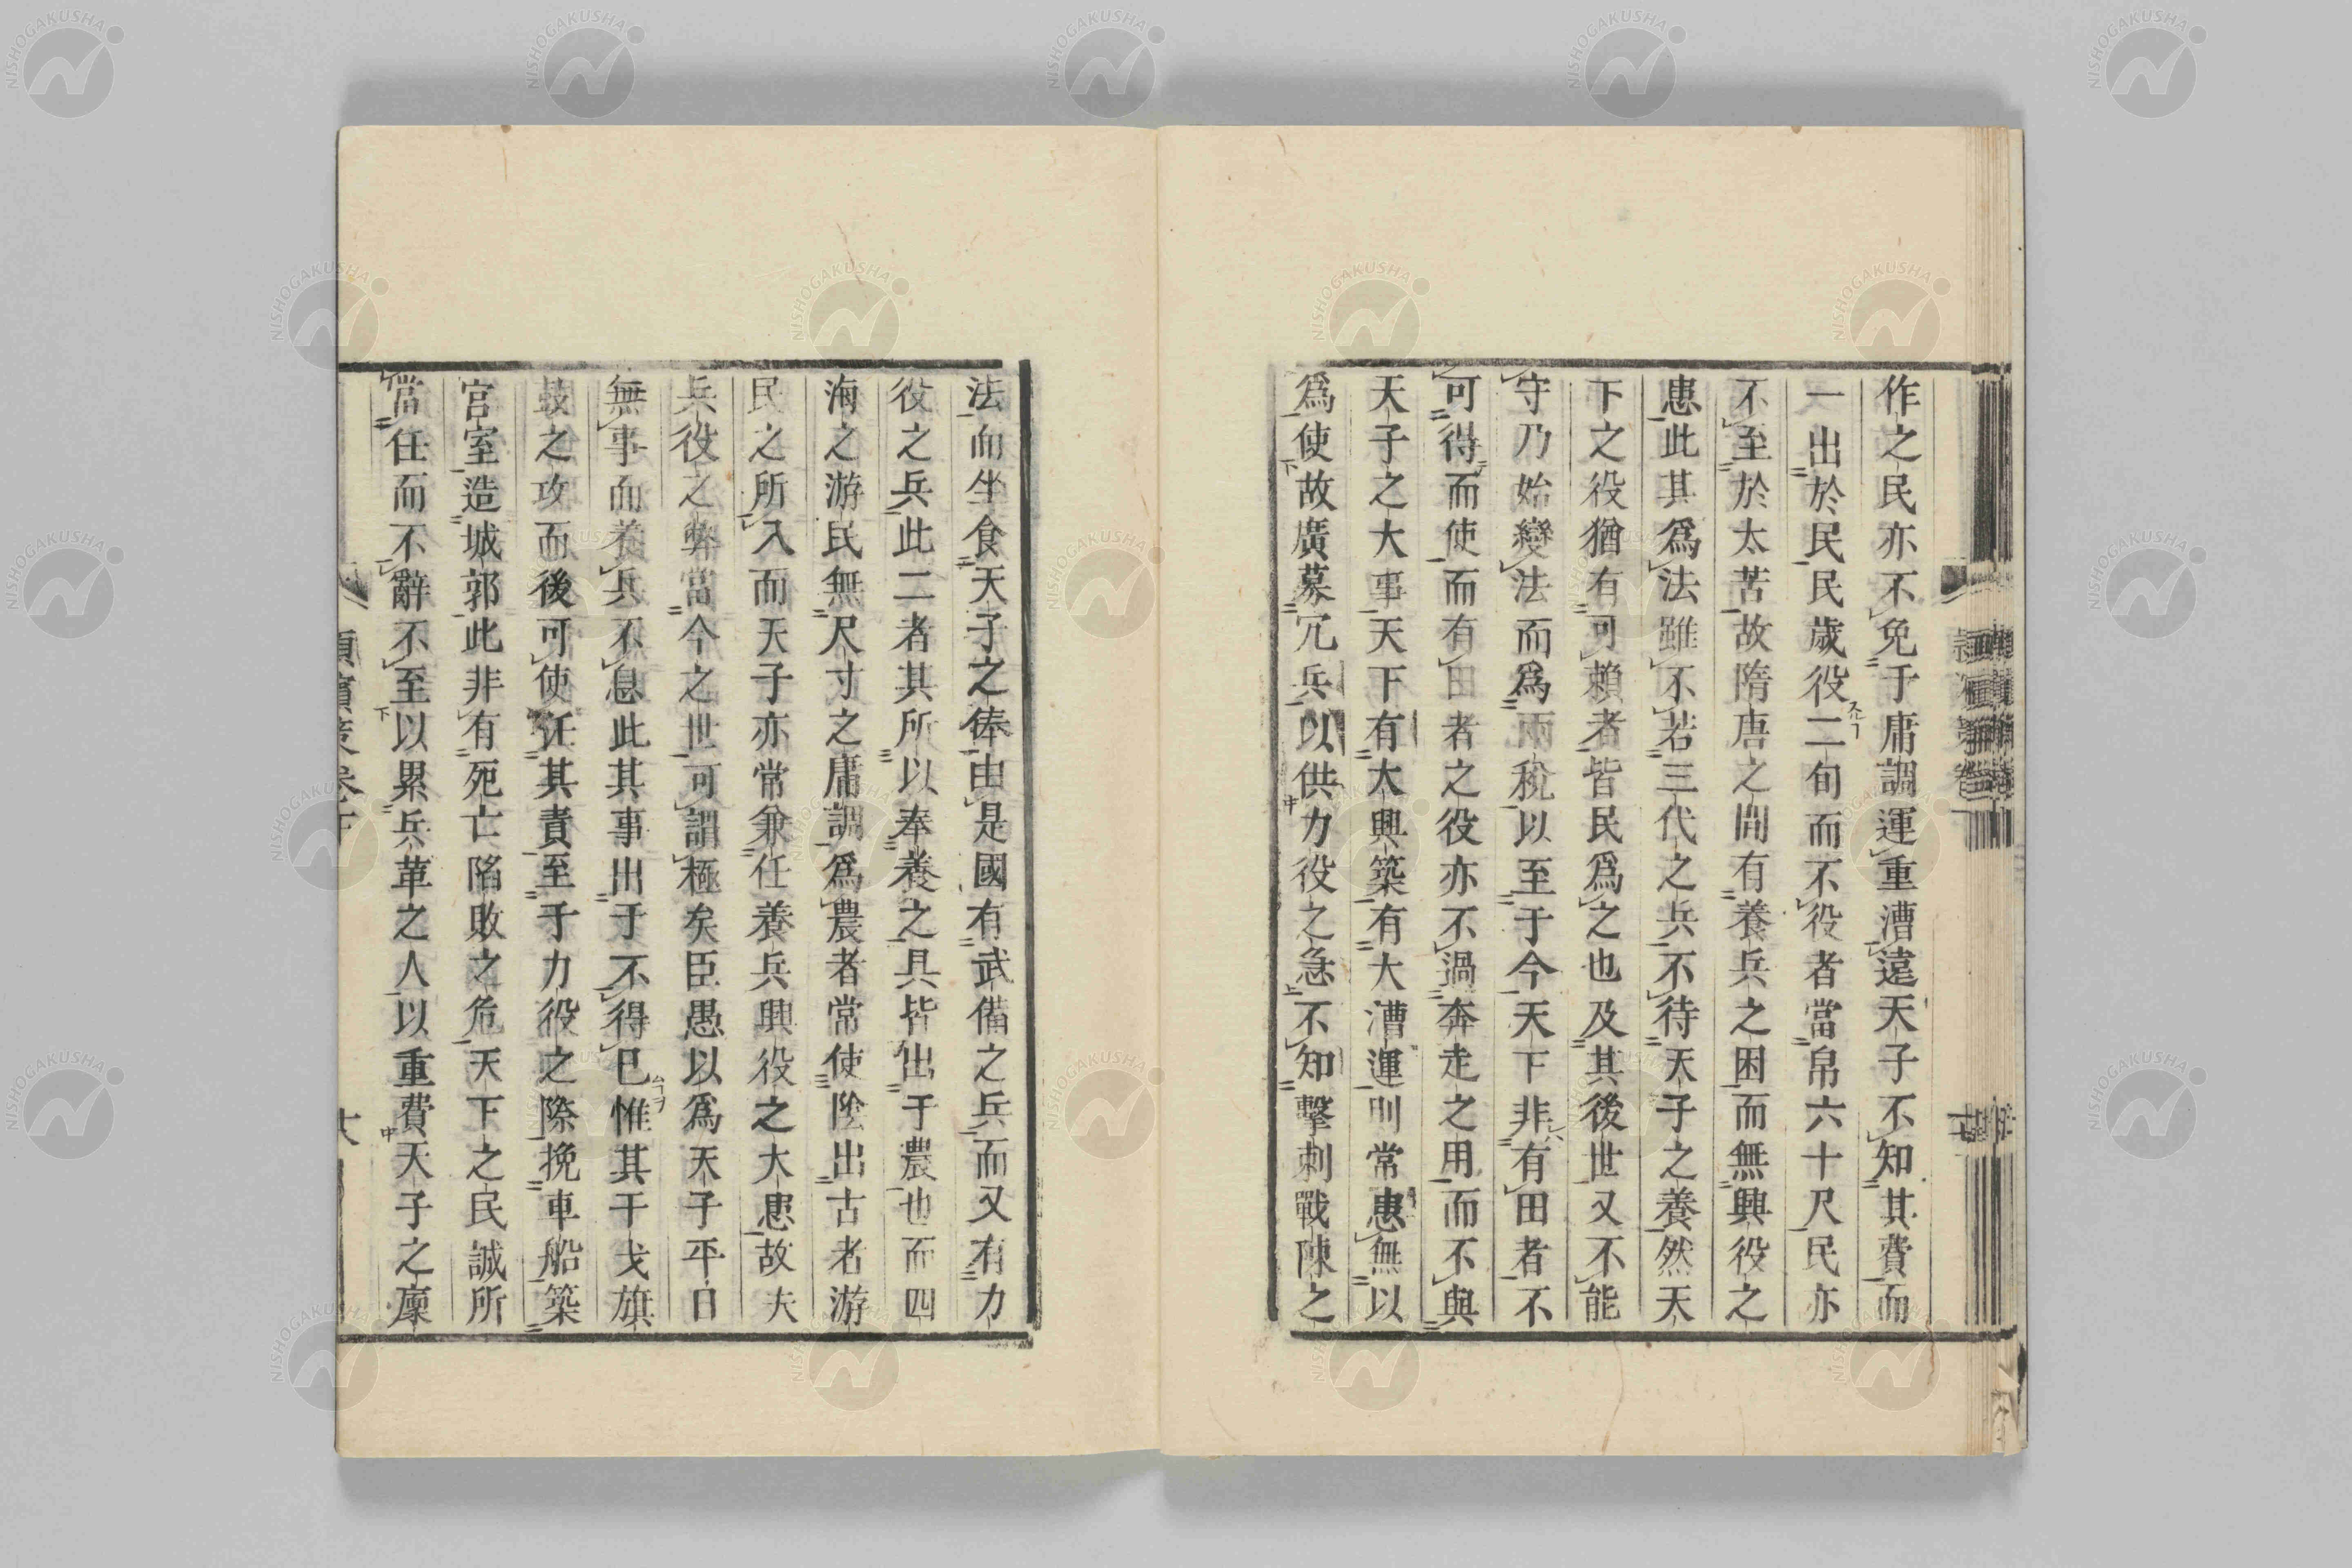 作之民亦不免于庸調運重漕遠天子不知其費而
一出於民民歲役二旬而不役者當帛六十尺民亦
不至於太苦故隋唐之間有養兵之困而無興役之
患此其爲法雖不若三代之兵不待天子之養然天
下之役猶有可賴者皆民爲之也及其後世又不能
守乃始變法而爲兩稅以至于今天下非有田者不
可得而使而有田者之役亦不過奔走之用而不與
天子之大事天下有大興築有大漕運則常患無以
爲使故廣募冗兵以供力役之急不知擊刺戰陳之
法而坐食天子之俸由是國有武備之兵而又有力
役之兵此二者其所以奉養之具皆出于農也而四
海之游民無尺寸之庸調爲農者常使陰出古者游
民之所入而天子亦常兼任養兵興役之大患故夫
兵役之弊當今之世可謂極矣臣愚以爲天子平日
無事而養兵不息此其事出于不得已惟其干戈旗
鼓之攻而後可使任其責至于力役之際挽車船築
宮室造城郭此非有死亡陷敗之危天下之民誠所
當任而不辭不至以累兵革之人以重費天子之廩
NISHOGAKUSHA